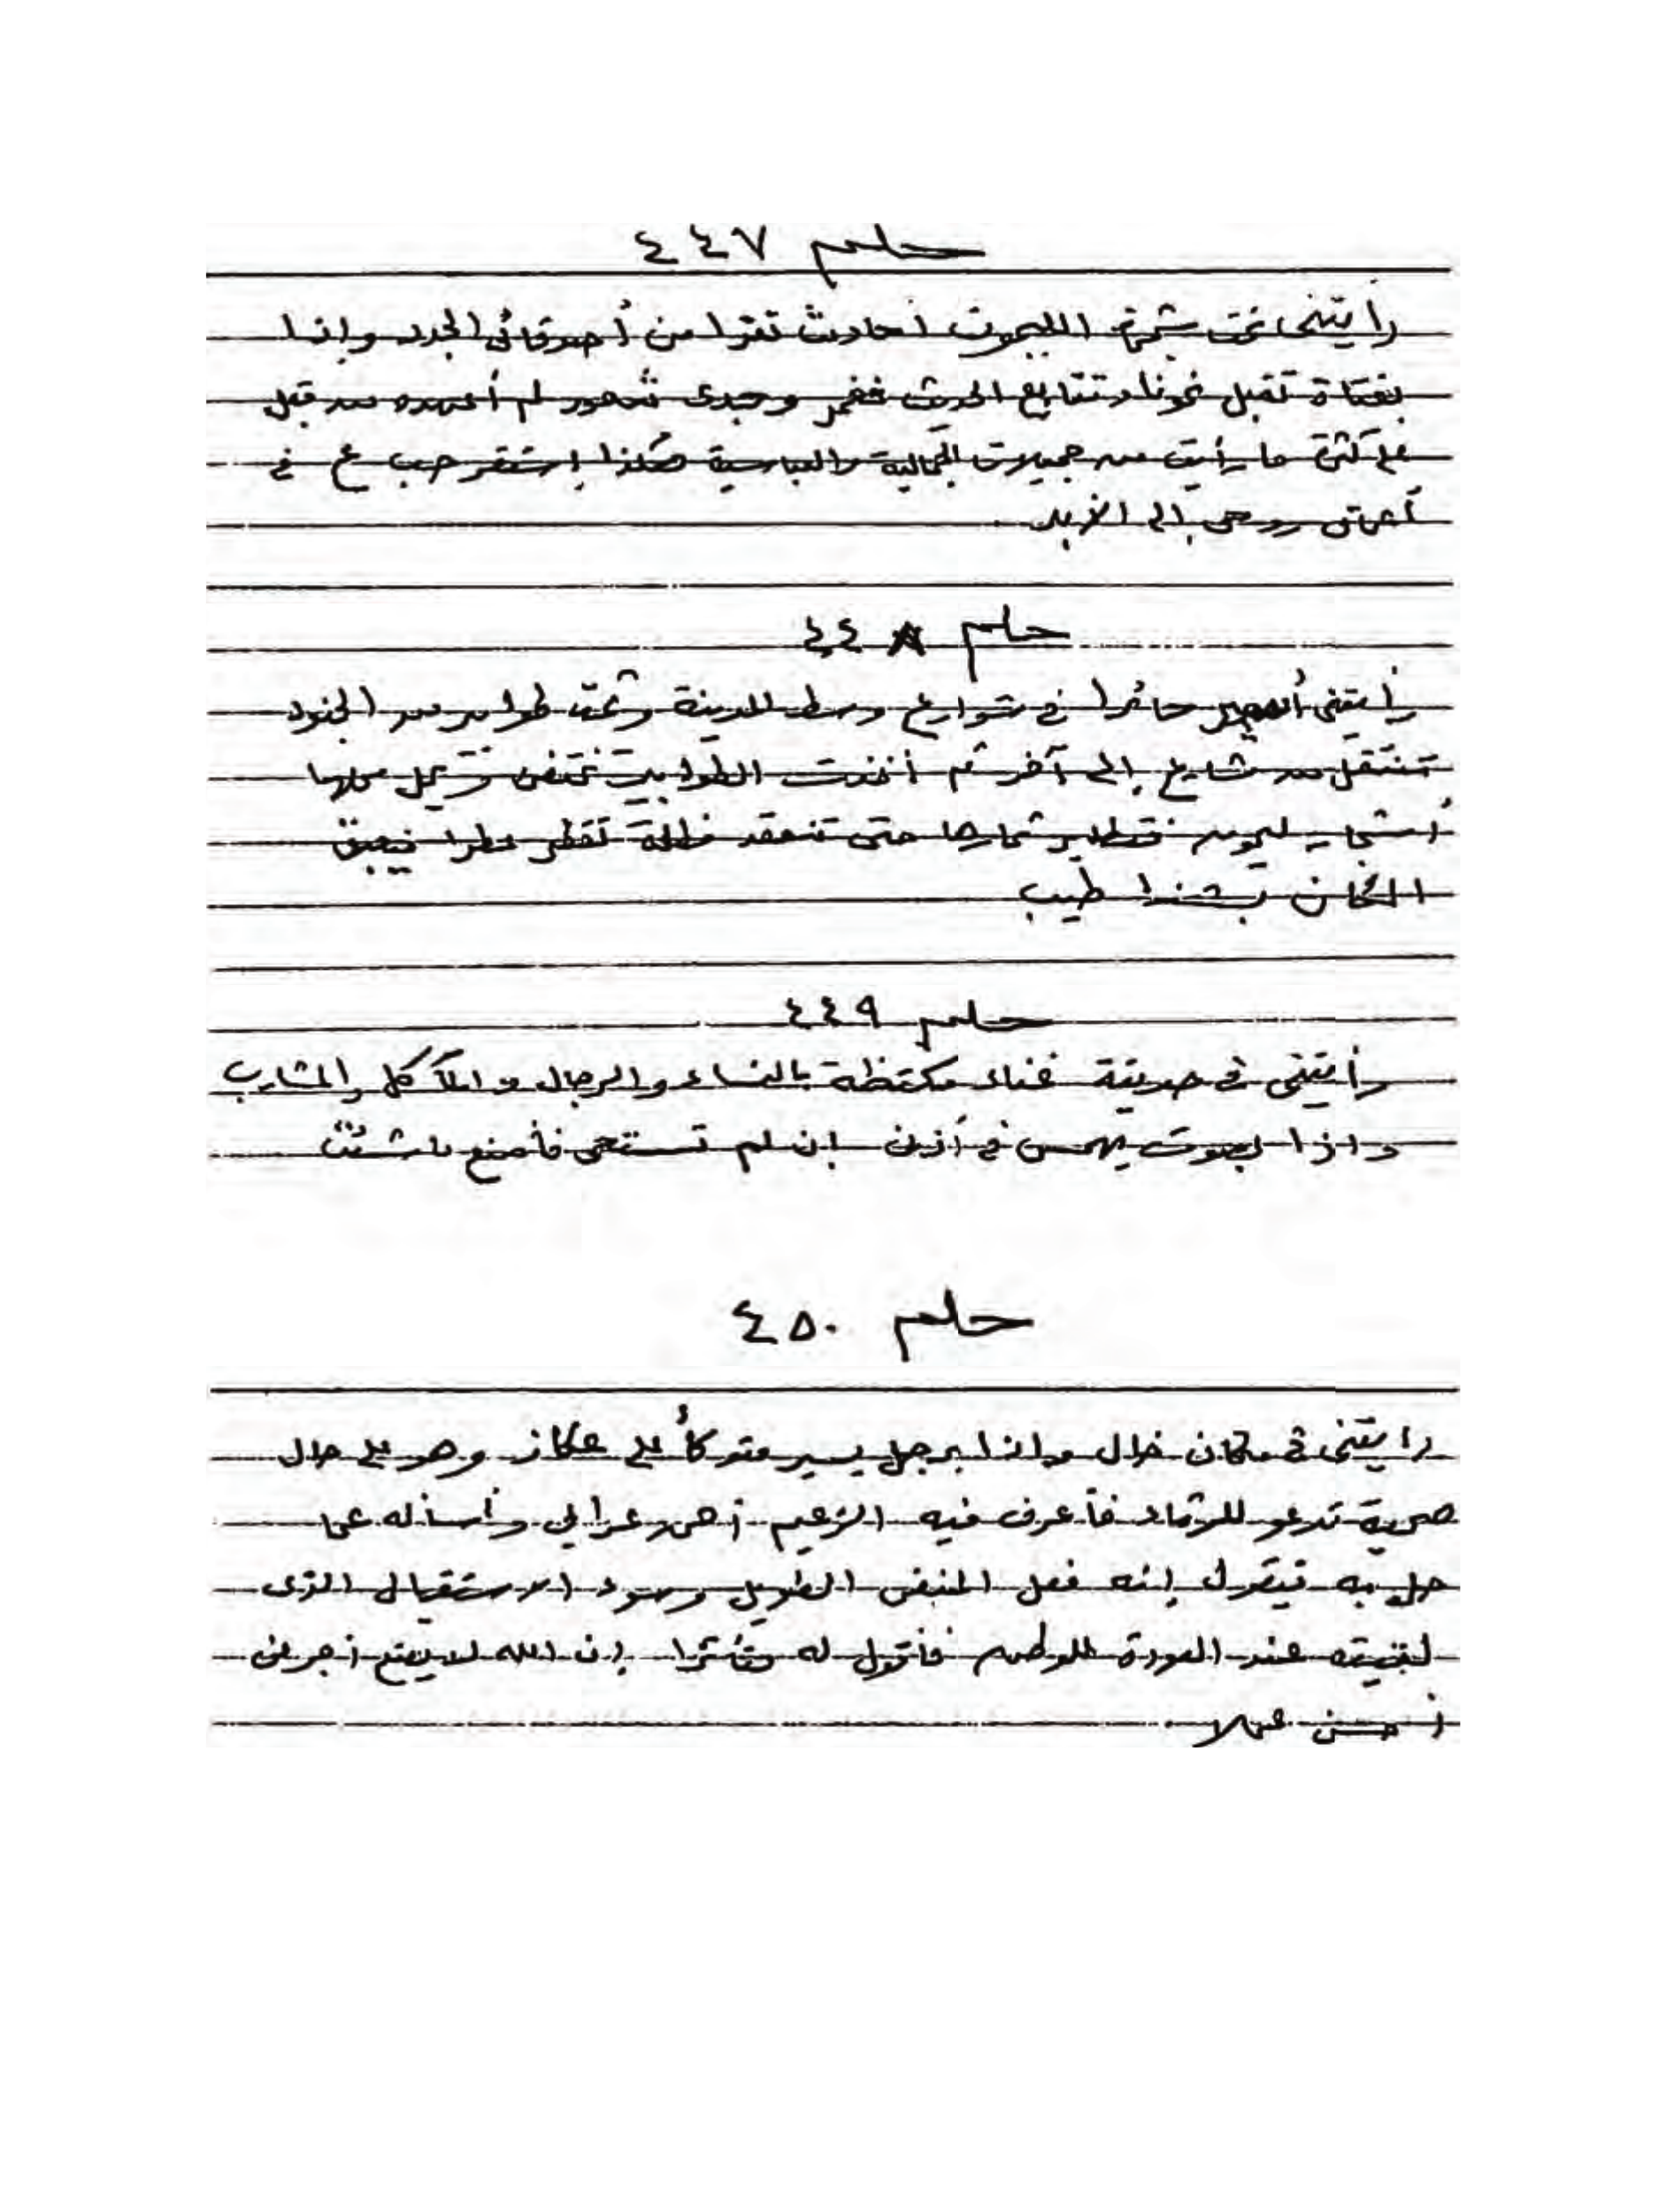 حلم ٤٤٧
رأيتنى تحت شجرة الليمون أحادث نفرا من أصدقائى الجدد وإذا
بفتاة تقبل نحونا وتتابع الحديث فغمر وجدى شعور لم أعهده من قبل
على كثرة ما رأيت من جميلات الجمالية والعباسية هكذا إستقر حب ع فى
أعماق روحى إلى الأبد
حلم ٤٤٨
رأيتنى أسير حائرا فى شوارع وسط المدينة وثمة طوابير من الجنود
تنتقل من شارع إلى آخر ثم أخذت الطوابير تختفى وتحل محلها
أشجار ليمون فتطير ثمارها حتى تنعقد مظلة تقطر عطرا فيعبق
المكان بشذا طيب
حلم ٤٤٩
رأيتنى فى حديقة غناء مكتظة بالنساء والرجال والمآكل والمشارب
واذا بصوت يهمس فى أذنى إن لم تستحى فأصنع ما شئت
حلم ٤٥٠
رايتنى فى مكان خال واذا برجل يسير متوكأ على عكاز وهو على حال
صحية تدعو للرثاء فأعرف فيه الزعيم أحمد عرابي وأسأله عما
حل به فيقول إنه فعل المنفى الطويل وسوء الاستقبال الذى
لقيته عند العودة للوطن فأقول له متأثرا إن الله لا يضيع أجر من
أحسن عملا